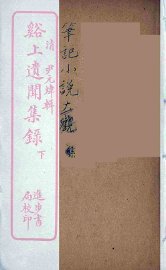 清 尹元煒輯
谿上遺聞集錄 下
進步書局校印
筆記小說大觀